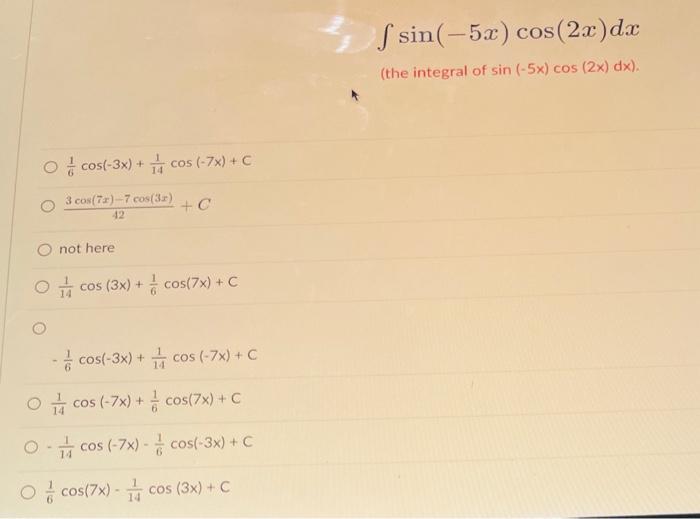 ∫ sin(−5x) cos(2x)dx
(the integral of sin (-5x) cos (2x) dx).
1/6 cos(-3x) + 1/14 cos (-7x) + C
3 cos(7x)−7 cos(3x)/42 + C
not here
1/14 cos (3x) + 1/6 cos(7x) + C
- 1/6 cos(-3x) + 1/14 cos (-7x) + C
1/14 cos (-7x) + 1/6 cos(7x) + C
- 1/14 cos (-7x) - 1/6 cos(-3x) + C
1/6 cos(7x) - 1/14 cos (3x) + C